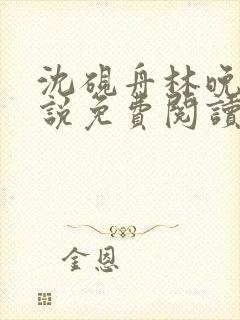 沈硯舟林晚
說免費閱讀
金恩